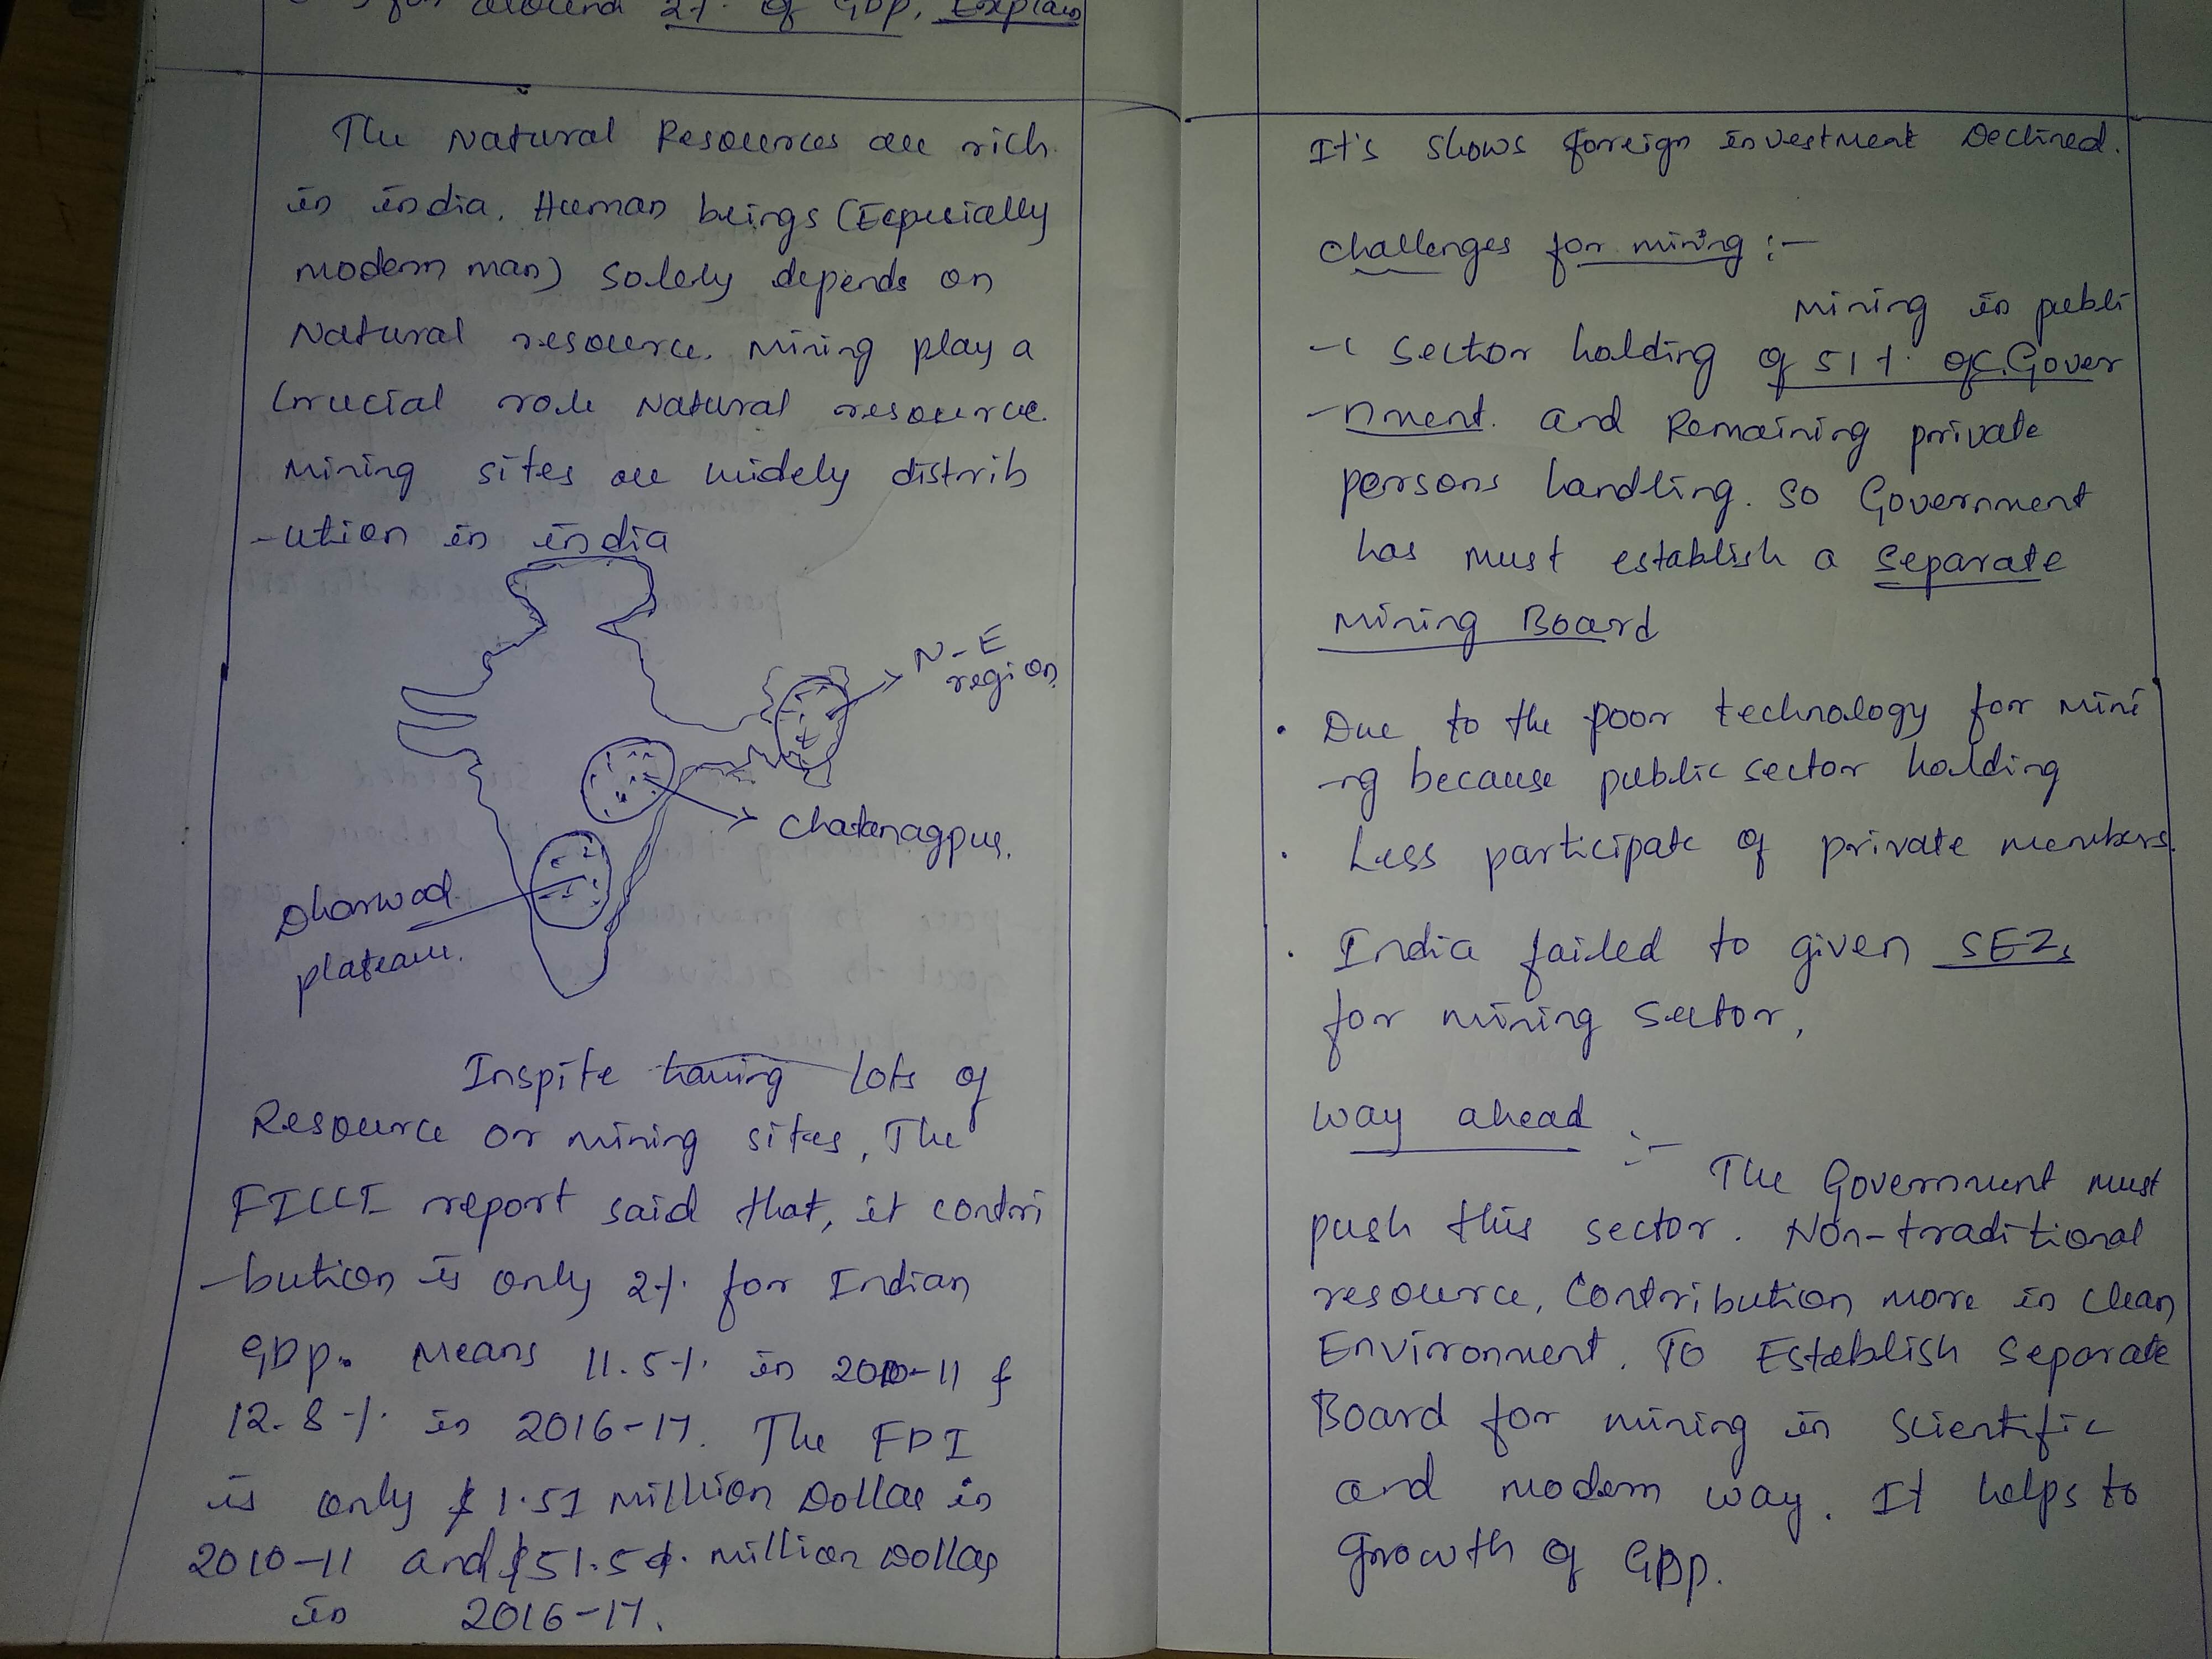 for around 2% of GDP. Explain
The Natural Resources are rich
in india. Human beings (Especially
modern man) Solely depends on
Natural resource. Mining play a
Crucial role Natural resource.
Mining sites are widely distrib
-ution in india
N-E
region
Chatanagpur.
Dharwad
plateau.
Inspite having lots of
Resource or mining sites, The
FICCI report said that, it contri
-bution is only 2% for Indian
GDP. Means 11.5% in 2010-11 &
12.8% in 2016-17. The FDI
is only $1.51 million Dollar in
2010-11 and $51.5 million Dollar
in 2016-17.
It's shows foreign investment Declined.
Challenges for mining :-
Mining in publi
-c sector holding of 51% of Gover
-nment. and Remaining private
persons handling. So Government
has must establish a Separate
Mining Board
• Due to the poor technology for mini
-ng because public sector holding
• Less participate of private members.
• India failed to given SEZs
for mining Sector,
way ahead :-
The Government must
push this sector. Non-traditional
resource, Contribution more in clean
Environment. To Establish Separate
Board for mining in Scientific
and modern way. It helps to
Growth of GDP.